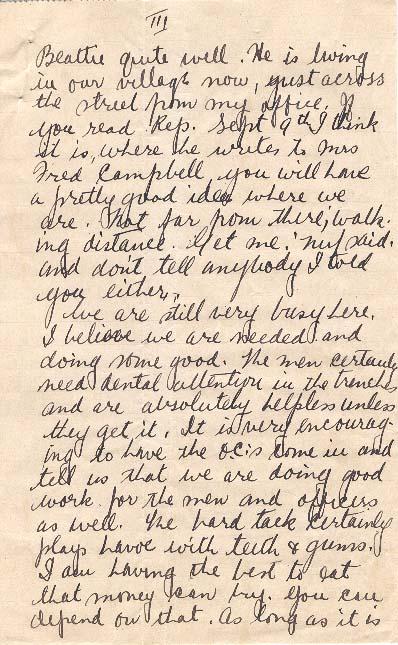 III
Beattie quite well. He is living
in our village now, just across
the street from my office. If
you read Rep. Sept 9th I think
it is, where he writes to Mrs
Fred Campbell, you will have
a pretty good idea where we
are. Not far from there; walk-
ing distance. Get me? 'nuf said.
and don't tell anybody I told
you either.
We are still very busy here.
I believe we are needed and
doing some good. The men certainly
need dental attention in the trenches
and are absolutely helpless unless
they get it. It is very encourag-
ing to have the O.C.'s come in and
tell us that we are doing good
work for the men and officers
as well. The hard tack certainly
plays havoc with teeth & gums.
I am having the best to eat
that money can buy. You can
depend on that. As long as it is